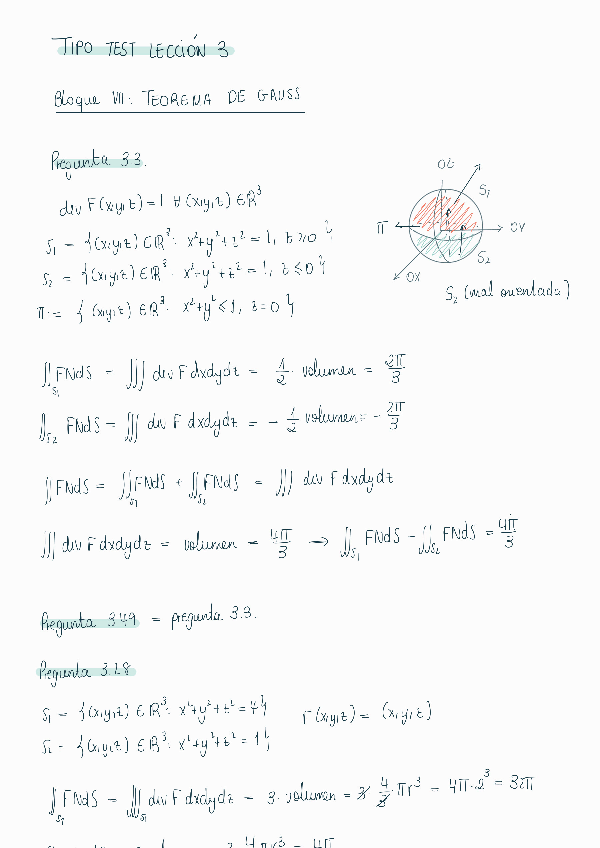 TIPO TEST LECCIÓN 3
Bloque VII: TEOREMA DE GAUSS
Pregunta 3.3.
div F(x,y,z) = 1 ∀ (x,y,z) ∈ ℝ³
S₁ = {(x,y,z) ∈ ℝ³: x²+y²+z² = 1, z ≥ 0}
S₂ = {(x,y,z) ∈ ℝ³: x²+y²+z² = 1, z ≤ 0}
π := {(x,y,z) ∈ ℝ³: x²+y² ≤ 1, z = 0}
OZ
S₁
π
OY
S₂
OX
S₂ (mal orientada)
∬_S₁ FNdS = ∭ div F dxdydz = 1/2 · volumen = 2π/3
∬_S₂ FNdS = ∭ div F dxdydz = - 1/2 volumen = - 2π/3
∬ FNdS = ∬_S₁ FNdS + ∬_S₂ FNdS = ∭ div F dxdydz
∭ div F dxdydz = volumen = 4π/3 → ∬_S₁ FNdS - ∬_S₂ FNdS = 4π/3
Pregunta 3.49 = pregunta 3.3.
Pregunta 3.28
S₁ = {(x,y,z) ∈ ℝ³: x²+y²+z² = 4} F(x,y,z) = (x,y,z)
S₂ = {(x,y,z) ∈ ℝ³: x²+y²+z² = 1}
∬_S₁ FNdS = ∭_S₁ div F dxdydz = 3 · volumen = 3 · 4/3 · πr³ = 4π · 2³ = 32π